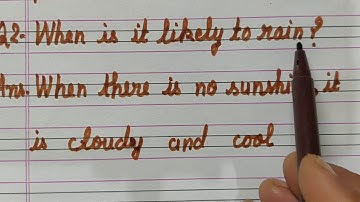 Q2- When is it likely to rain?
Ans- When there is no sunshine, it
is cloudy and cool